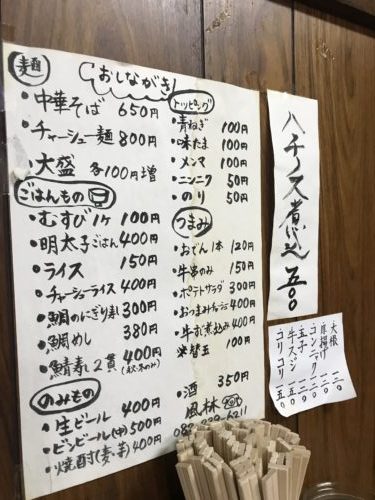 おしながき
麺
・中華そば 650円
・チャーシュー麺 800円
・大盛 各100円増
ごはんもの
・むすび1ケ 100円
・明太子ごはん 400円
・ライス 150円
・チャーシューライス 400円
・鯛のにぎり 300円
・鯛めし 380円
・鯖寿し2貫 400円
(秋・冬のみ)
のみもの
・生ビール 400円
・ビンビール(中) 500円
・焼酎(麦・芋) 400円
トッピング
・青ねぎ 100円
・味たま 100円
・メンマ 100円
・ニンニク 50円
・のり 50円
つまみ
・おでん1本 120円
・牛串のみ 150円
・ポテトサラダ 300円
・おつまみチャーシュー 400円
・牛すじ煮込み 400円
・替玉 100円
・酒 350円
風林
ハチノス煮込 五〇〇
大根 一二〇
厚揚げ 一二〇
コンニャク 一二〇
玉子 一二〇
牛スジ 一五〇
コリコリ 一五〇